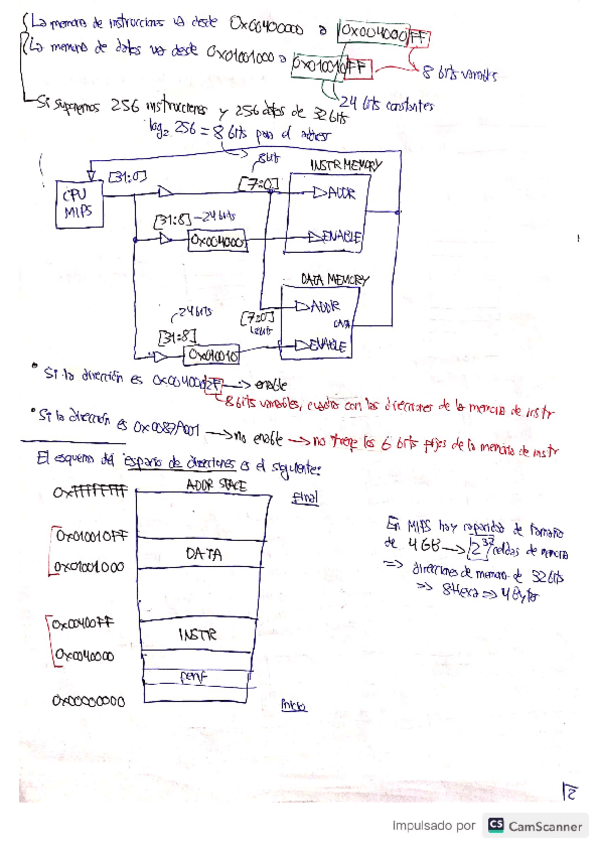 La memoria de instrucciones va desde 0x00400000 a 0x004000FF
La memoria de datos va desde 0x01001000 a 0x010010FF
8 bits variables
24 bits constantes
Si suponemos 256 instrucciones y 256 datos de 32 bits
log2 256 = 8 bits para el
8bit
[31:0]
[7:0]
INSTR MEMORY
CPU
MIPS
ADDR
[31:8] - 24 bits
0x004000
ENABLE
DATA MEMORY
24 bits
[7:0]
ADDR
[31:8]
DATA
0x010010
ENABLE
* Si la dirección es 0x0040002F → enable
8 bits variables, cuadra con las direcciones de la memoria de instr
* Si la dirección es 0x0087A001 → no enable → no tiene los 6 bits fijos de la memoria de instr
El esquema del espacio de direcciones es el siguiente:
ADDR SPACE
0xFFFFFFFF
Final
0x010010FF
DATA
0x01001000
En MIPS hay capacidad de tamaño
de 4GB → 2^32 celdas de memoria
⇒ direcciones de memoria de 32 bits
⇒ 8 Hexa ⇒ 4 Byte
0x00400FF
INSTR
0x0040000
0x00000000
Inicio
12
Impulsado por CS CamScanner